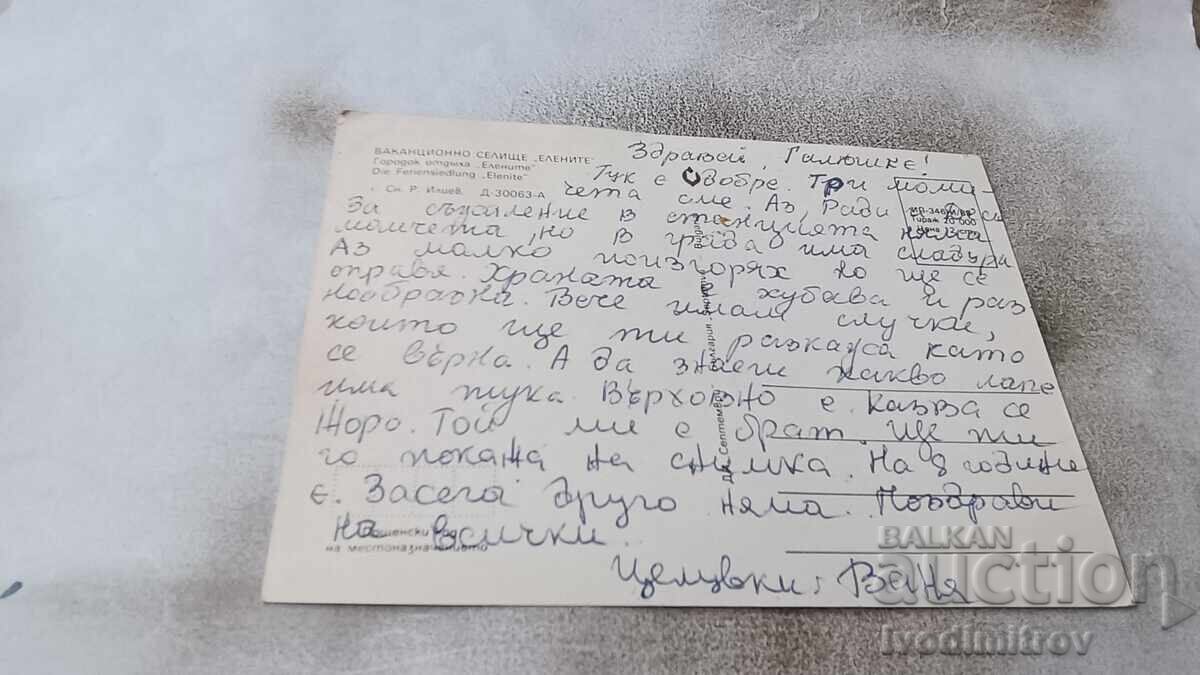 ВАКАНЦИОННО СЕЛИЩЕ „ЕЛЕНИТЕ"
Городок отдыха „Елените"
Die Feriensiedlung „Elenite"
Сн. Р. Илиев. Д-30063-А
Здравей, Галюшке!
Тук е добре. Три моми-
чета сме. Аз, Ради и
За съжаление в станцията няма
момчета, но в града има
Аз малко поизгорях но ще се
оправя. Храната е хубава и раз
нообразна. Вече имам случки,
които ще ти разкажа като
се върна. А да знаеш какво лапе
има тука. Върховно е. Казва се
Жоро. Той ми е брат. Ще ти
го покажа на снимка. На 8 години
е. Засега друго няма. Поздрави
на всички.
Целувки: Ваня
Тираж 20 000
Д. И. „Септември"
България
на местоназначението
BALKAN
auction
Ivodimitrov